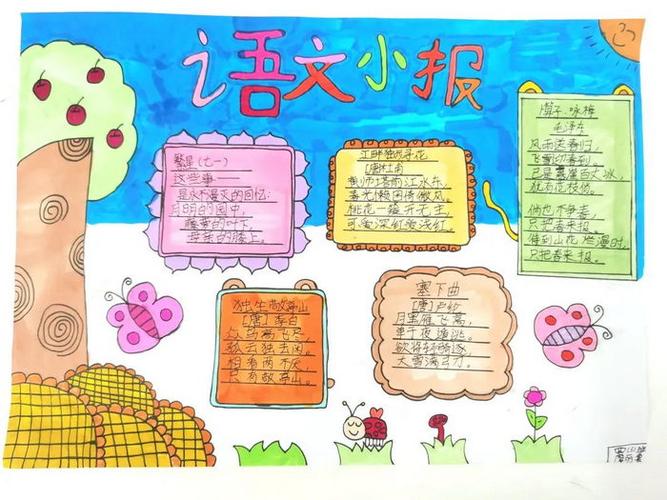 语文小报
繁星(七一)
这些事——
是永不漫灭的回忆:
月明的园中,
藤萝的叶下,
母亲的膝上。
江畔独步寻花
[唐]杜甫
黄师塔前江水东,
春光懒困倚微风。
桃花一簇开无主,
可爱深红爱浅红
算子·咏梅
毛泽东
风雨送春归,
飞雪迎春到。
已是悬崖百丈冰,
犹有花枝俏。
俏也不争春,
只把春来报。
待到山花烂漫时,
只把春来报。
独坐敬亭山
[唐]李白
众鸟高飞尽,
孤云独去闲。
相看两不厌
只有敬亭山。
塞下曲
[唐]卢纶
月黑雁飞高,
单于夜遁逃。
欲将轻骑逐,
大雪满弓刀。